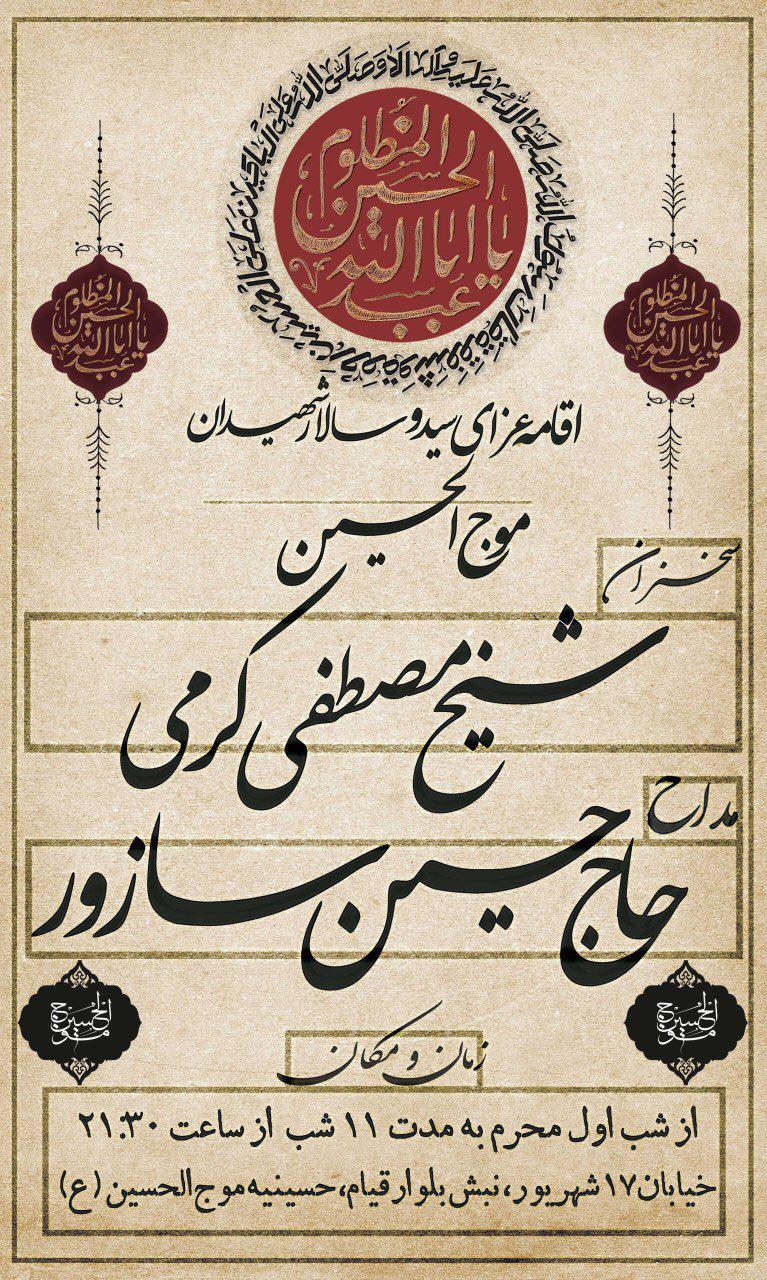 یا اباعبدالله الحسین المظلوم
یا اباعبدالله الحسین المظلوم
یا اباعبدالله الحسین المظلوم
اقامه عزای سید و سالار شهیدان
موج الحسین
سخنران
شیخ مصطفی کرمی
مداح
حاج حسین سازور
موج الحسین
موج الحسین
زمان و مکان
از شب اول محرم به مدت ۱۱ شب از ساعت ۲۱:۳۰
خیابان ۱۷ شهریور، نبش بلوار قیام، حسینیه موج الحسین (ع)